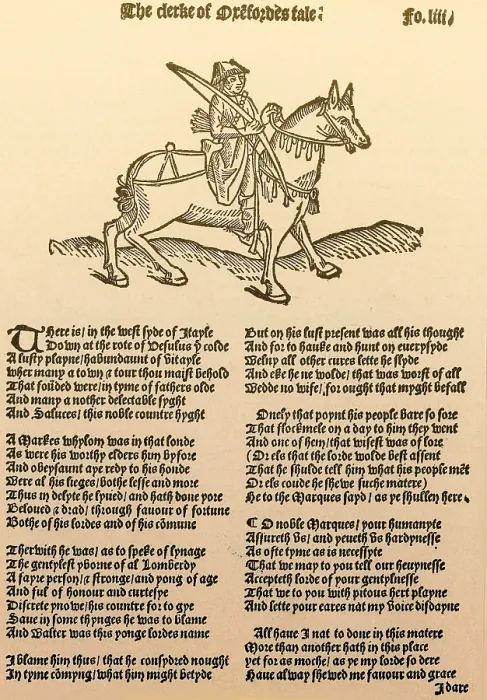 The clerke of Oxẽfordes tale. Fo. liii.
THere is/ in the west syde of Itayle
Down at the rote of Vesulus ẏ colde
A lusty playne/habundaunt of vitayle
wher many a town & tour thou maist behold
That foũded were/in tyme of fathers olde
And many a nother delectable syght
And Saluces/ this noble countre hyght

A Markes whylom was in that londe
As were his worthy elders hym byfore
And obeysaunt aye redy to his honde
Were al his lieges/bothe lesse and more
Thus in delyte he lyued/and hath done yore
Beloued & drad/ through fauour of fortune
Bothe of his lordes and of his cõmune

Therwith he was/ as to speke of lynage
The gentylest yborne of al Lomberdy
A fayre person/& stronge/and yong of age
And ful of honour and curtesye
Discrete ynowe/his countre for to gye
Saue in some thynges he was to blame
And Walter was this yonge lordes name

I blame him thus/ that he consydred nought
In tyme cõmyng/what him might betyde
But on his lust present was all his thought
And for to hauke and hunt on euerysyde
Welny all other cures lette he slyde
And eke he ne wolde/ that was worst of all
Wedde no wife/ for ought that myght befall

Onely that poynt his people bare so sore
That flockmele on a day to him they went
And one of hem/that wisest was of lore
(Or els that the lorde wolde best assent
That he shulde tell him what his people mẽt
Or els coude he shewe suche matere)
He to the Marques sayd/ as ye shullen here.

¶ O noble Marques/ your humanyte
Assureth vs/ and yeueth vs hardynesse
As ofte tyme as is necessyte
That we may to you tell our heuynesse
Accepteth lorde of your gentylnesse
That we to you with pitous hert playne
And lette your eares nat my voice disdayne

All haue I nat to done in this matere
More than another hath in this place
yet for as moche/ as ye my lorde so dere
Haue alway shewed me fauour and grace
I dare